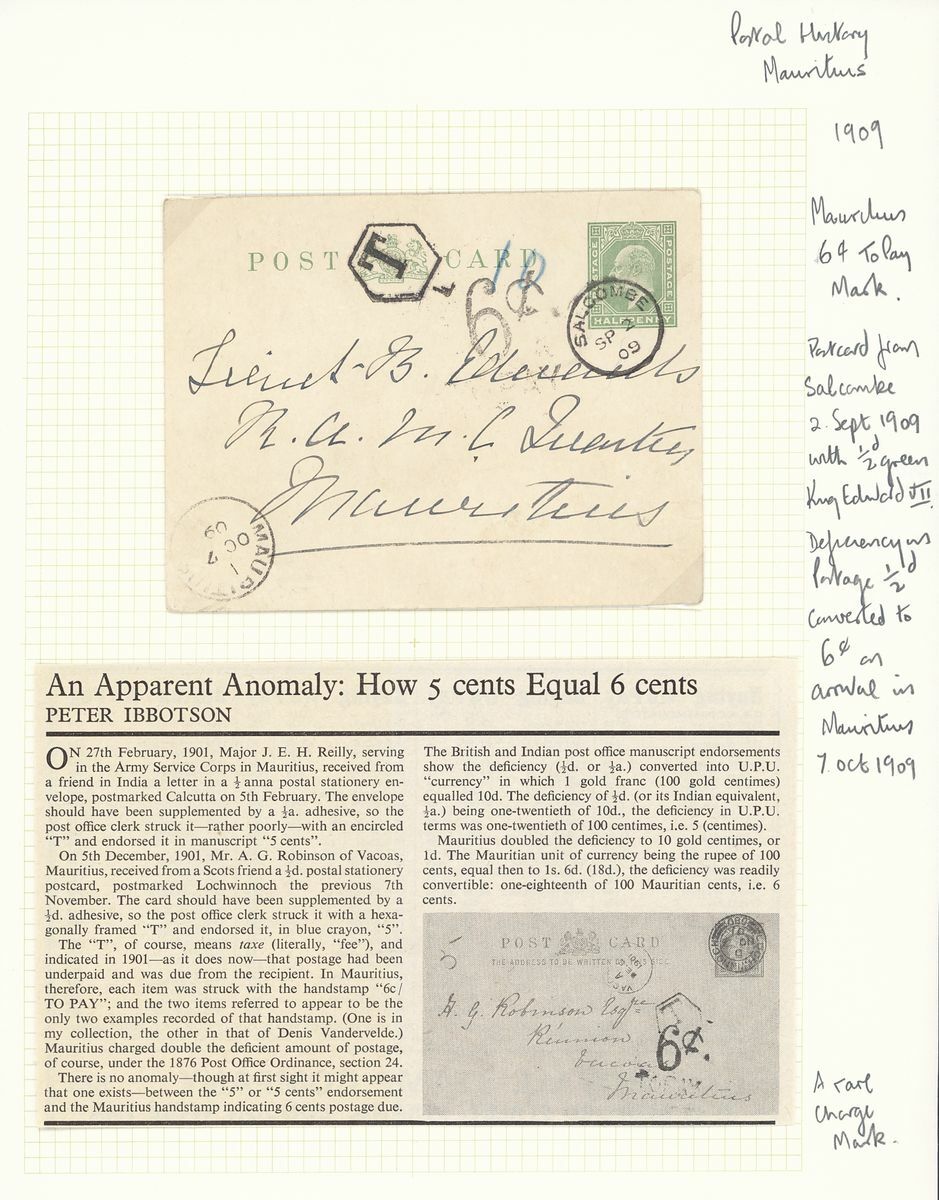 Postal History
Mauritius
1909
Mauritius
6¢ To Pay
Mark.
Postcard from
Salcombe
2. Sept 1909
with ½d green
King Edward VII.
Deficiency in
Postage ½d
converted to
6¢ on
arrival in
Mauritius
7 Oct 1909
A rare
Charge
Mark.
POST CARD
T
L
10
6¢.
POSTAGE
POSTAGE
HALFPENNY
SALCOMBE
SP 2
09
Lieut. B. Edwards
R. A. M. C Quarters
Mauritius
MAURITIUS
1
OC 7
09
An Apparent Anomaly: How 5 cents Equal 6 cents
PETER IBBOTSON
ON 27th February, 1901, Major J. E. H. Reilly, serving
in the Army Service Corps in Mauritius, received from
a friend in India a letter in a ½ anna postal stationery en-
velope, postmarked Calcutta on 5th February. The envelope
should have been supplemented by a ½a. adhesive, so the
post office clerk struck it—rather poorly—with an encircled
"T" and endorsed it in manuscript "5 cents".
On 5th December, 1901, Mr. A. G. Robinson of Vacoas,
Mauritius, received from a Scots friend a ½d. postal stationery
postcard, postmarked Lochwinnoch the previous 7th
November. The card should have been supplemented by a
½d. adhesive, so the post office clerk struck it with a hexa-
gonally framed "T" and endorsed it, in blue crayon, "5".
The "T", of course, means taxe (literally, "fee"), and
indicated in 1901—as it does now—that postage had been
underpaid and was due from the recipient. In Mauritius,
therefore, each item was struck with the handstamp "6c/
TO PAY"; and the two items referred to appear to be the
only two examples recorded of that handstamp. (One is in
my collection, the other in that of Denis Vandervelde.)
Mauritius charged double the deficient amount of postage,
of course, under the 1876 Post Office Ordinance, section 24.
There is no anomaly—though at first sight it might appear
that one exists—between the "5" or "5 cents" endorsement
and the Mauritius handstamp indicating 6 cents postage due.
The British and Indian post office manuscript endorsements
show the deficiency (½d. or ½a.) converted into U.P.U.
"currency" in which 1 gold franc (100 gold centimes)
equalled 10d. The deficiency of ½d. (or its Indian equivalent,
½a.) being one-twentieth of 10d., the deficiency in U.P.U.
terms was one-twentieth of 100 centimes, i.e. 5 (centimes).
Mauritius doubled the deficiency to 10 gold centimes, or
1d. The Mauritian unit of currency being the rupee of 100
cents, equal then to 1s. 6d. (18d.), the deficiency was readily
convertible: one-eighteenth of 100 Mauritian cents, i.e. 6
cents.
POST CARD
THE ADDRESS TO BE WRITTEN ON THIS SIDE
5
A. G. Robinson Esqre
Réunion
Vacoa
Mauritius
6¢.